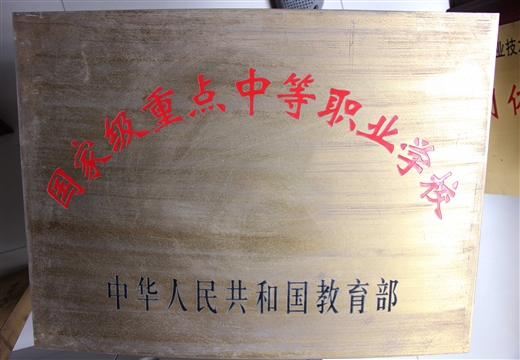 国家级重点中等职业学校
中华人民共和国教育部
业技